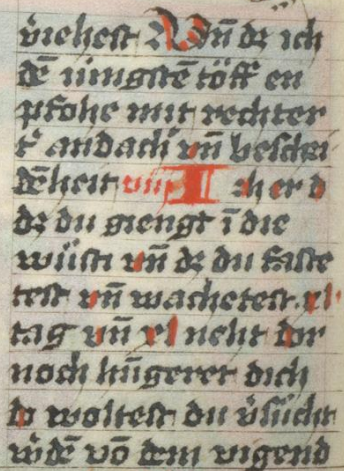 v̈iehest Vnd̄ dz ich
dē iüngstē töff en
pfohe mit rechter
r̾ andacht vn̄ beschei
dēheit viij Ich er d
dz du giengt ī die
wüsti vn̄ dz du faste
test vn̄ wachetest xl
tag vn̄ xl neht dor
noch hūgeret dich
do woltest du v̾sücht
w̾dē vō dem vigend